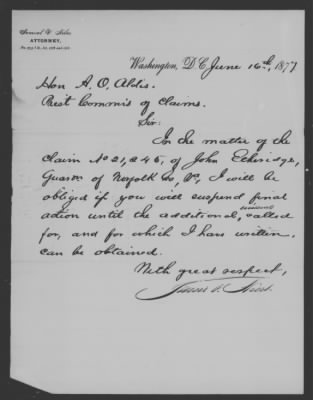 ATTORNEY,
Washington, D.C. June 16th, 1877
Hon A. O. Aldis.
Prest Commis of Claims.
Sir:
In the matter of the
claim No 21,245, of John Etheridge,
Guarn of Norfolk Co, Va, I will be
obliged if you will suspend final
action until the additional, called
for, and for which I have written,
can be obtained.
With great respect,